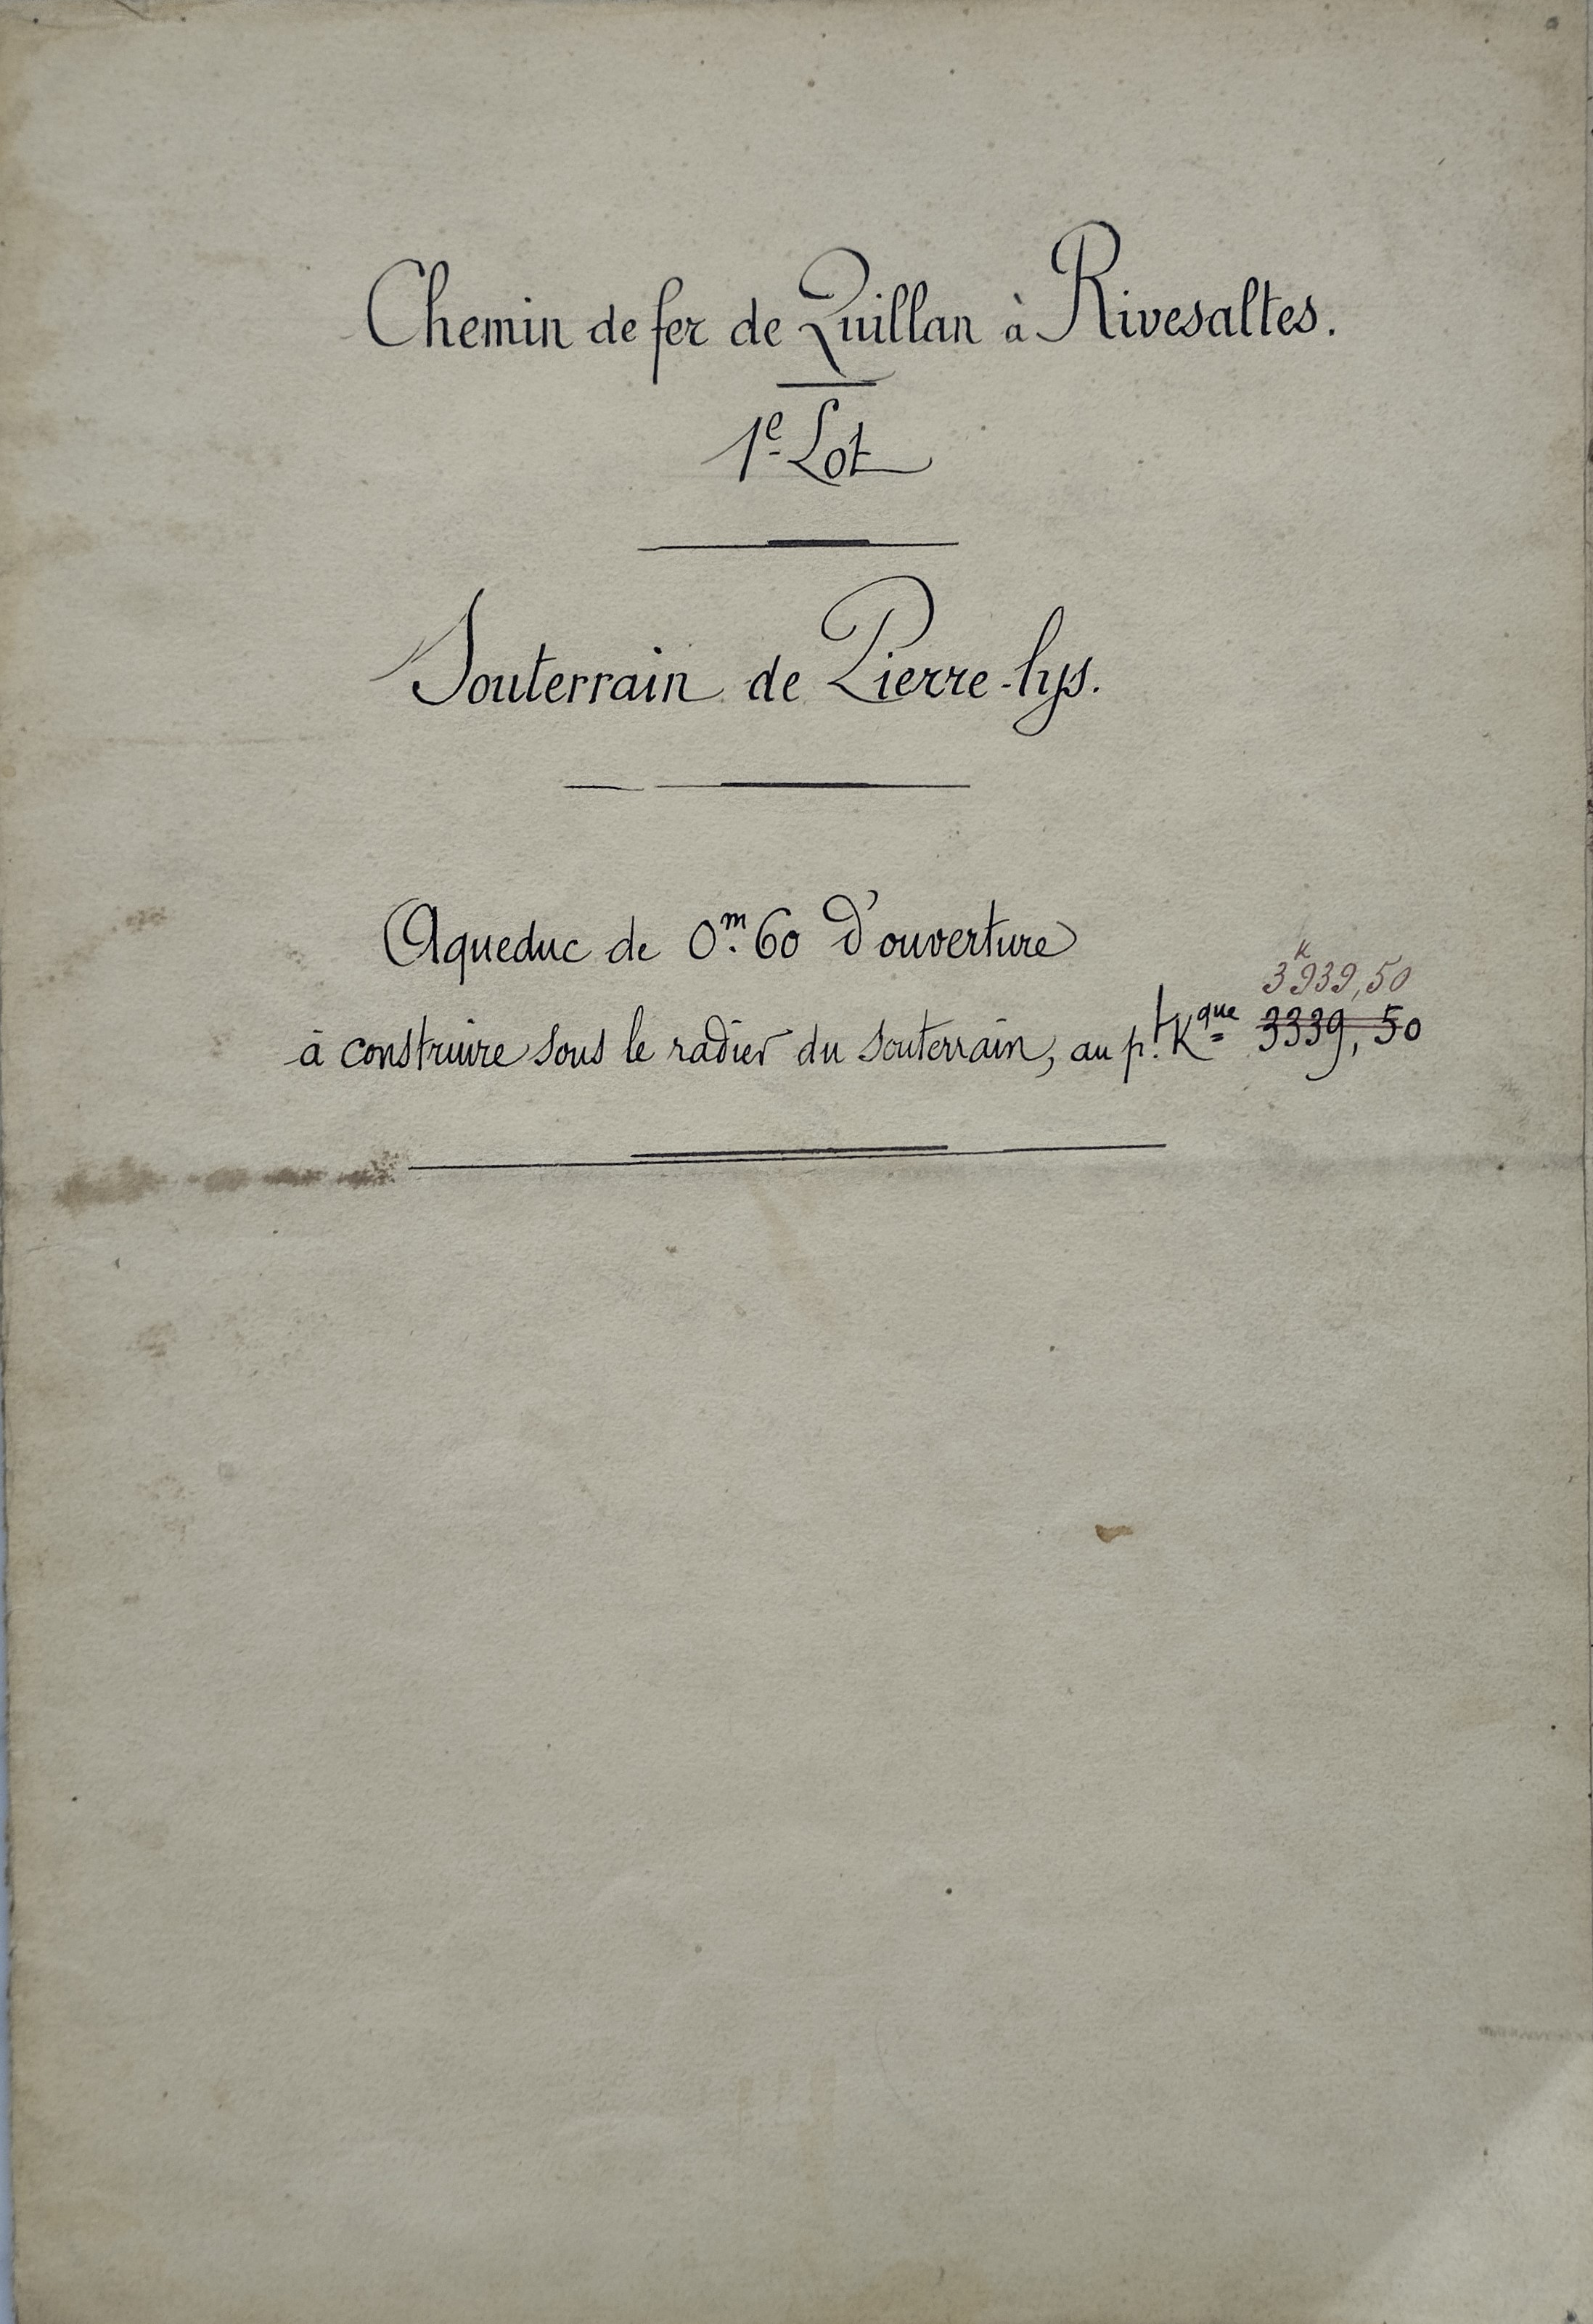 Chemin de fer de Quillan à Rivesaltes.
1e Lot
Souterrain de Pierre-lys.
Aqueduc de 0m.60 d'ouverture
3k939,50
à construire sous le radier du souterrain, au p.t Kque 3339,50